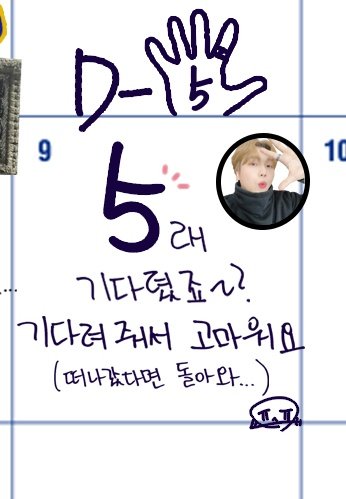 D-5
9
10
5래
기다렸죠~?
기다려 줘서 고마워요
(떠나갔다면 돌아와...)
ㅠㅅㅠ